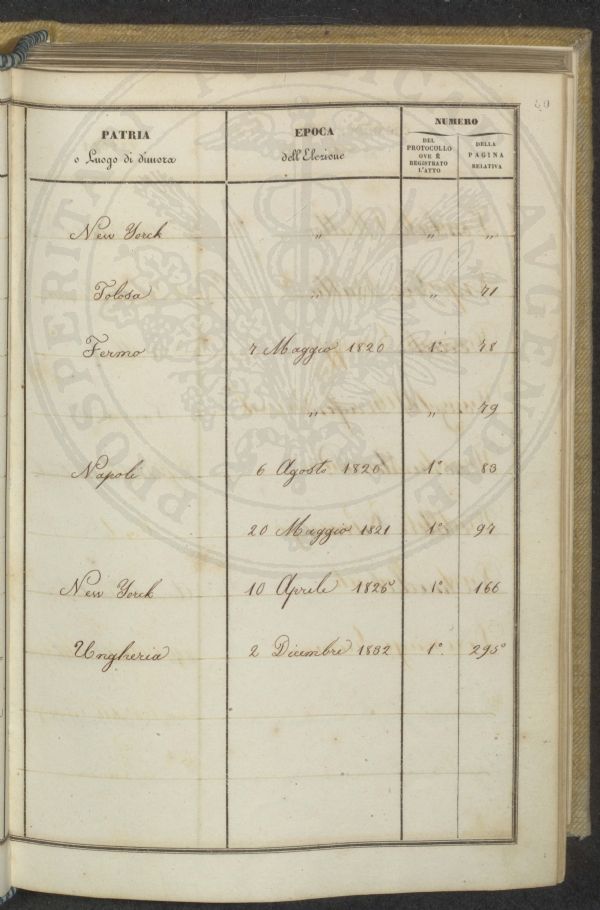 40
PATRIA
o Luogo di dimora
EPOCA
dell'Elezione
NUMERO
DEL
PROTOCOLLO
OVE È
REGISTRATO
L'ATTO
DELLA
PAGINA
RELATIVA
New Yorck „ „ „
Tolosa „ „ 71
Fermo 7 Maggio 1820 1° 78
„ „ 79
Napoli 6 Agosto 1820 1° 83
20 Maggio 1821 1° 97
New Yorck 10 Aprile 1825 1° 166
Ungheria 2 Dicembre 1832 1° 295
PROSPERITATI PUBLICAE AUGENDAE